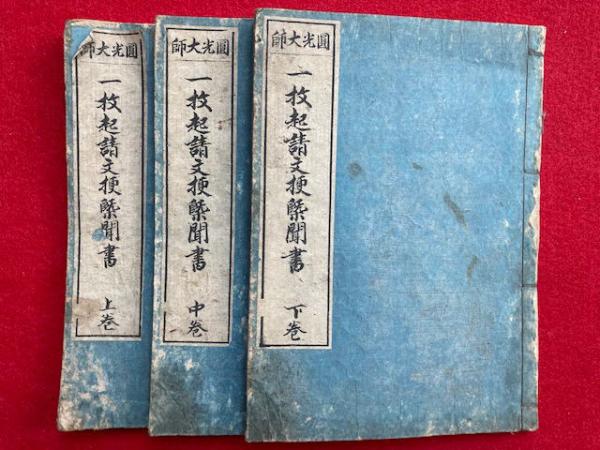 圓光大師
一枚起請文梗槩聞書
下巻
圓光大師
一枚起請文梗槩聞書
中巻
圓光大師
一枚起請文梗槩聞書
上巻